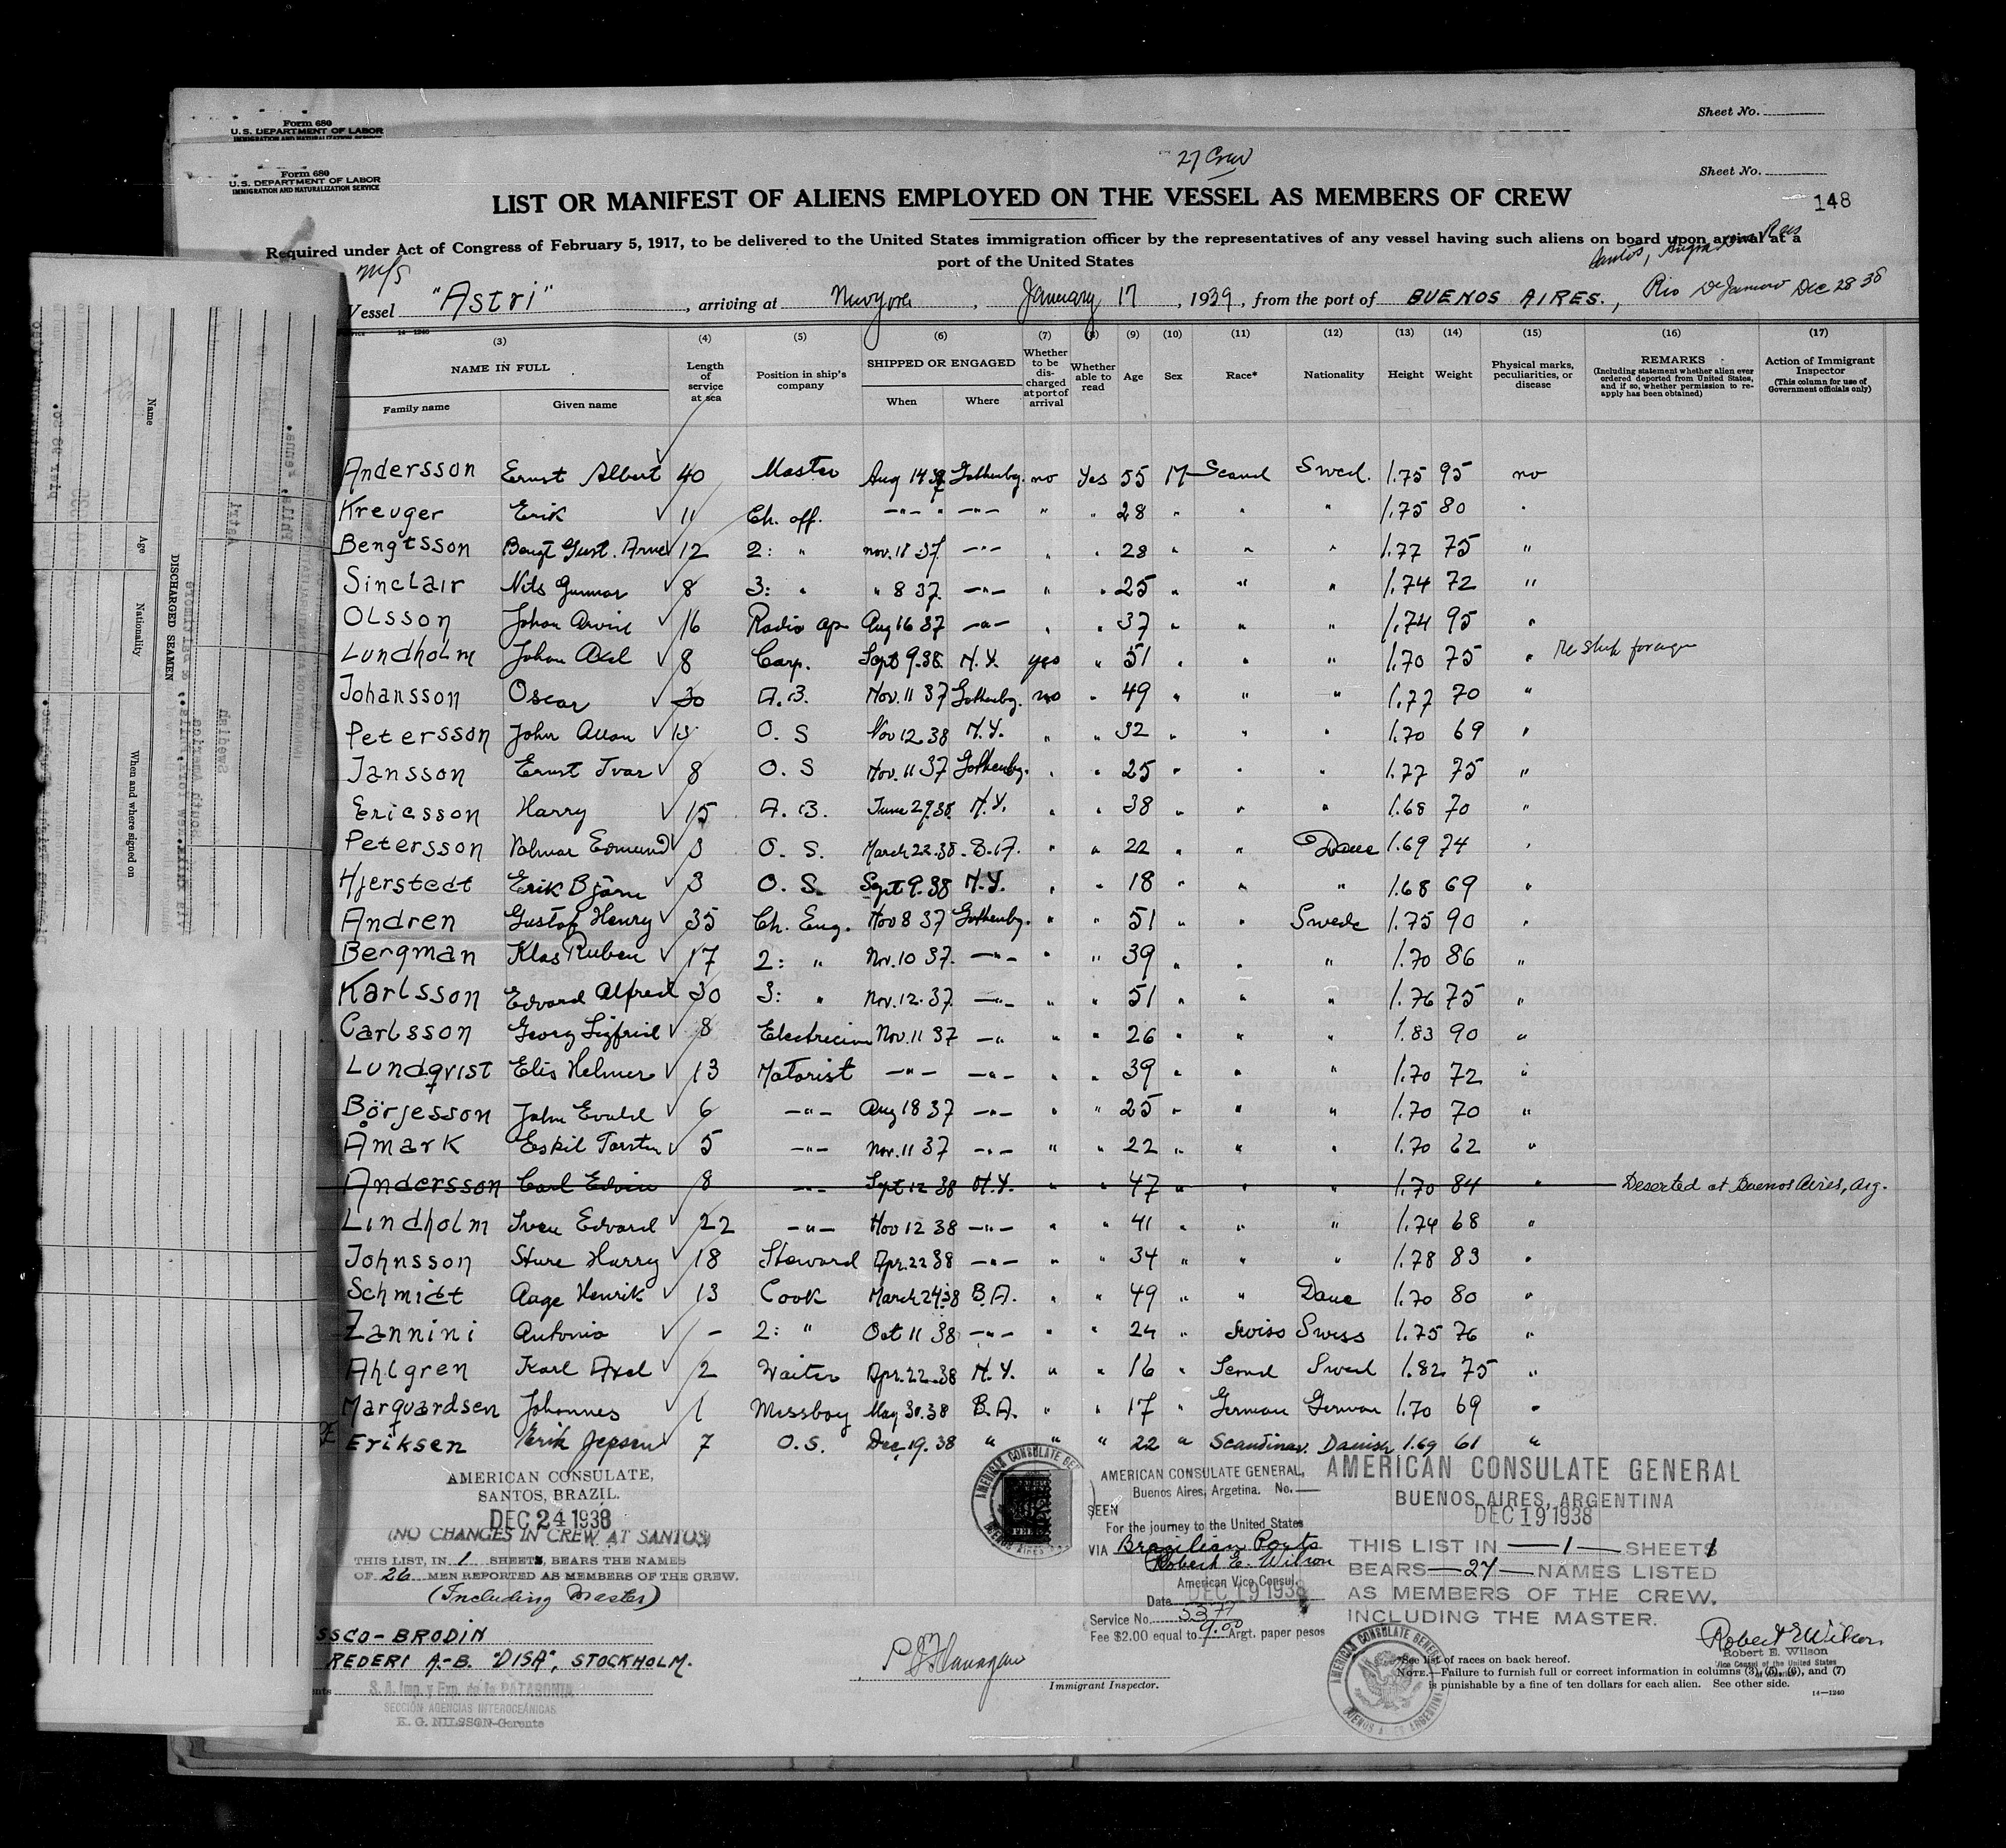 Form 680
U.S. DEPARTMENT OF LABOR
IMMIGRATION AND NATURALIZATION SERVICE
Sheet No.
Form 680
U.S. DEPARTMENT OF LABOR
IMMIGRATION AND NATURALIZATION SERVICE
27 Crew
Sheet No.
LIST OR MANIFEST OF ALIENS EMPLOYED ON THE VESSEL AS MEMBERS OF CREW
148
Required under Act of Congress of February 5, 1917, to be delivered to the United States immigration officer by the representatives of any vessel having such aliens on board upon arrival at a
port of the United States
Santos, Angra Dos Reis
M/S
Vessel "Astri", arriving at New York, January 17, 1939, from the port of BUENOS AIRES., Rio De Janeiro Dec 28 38
14-1240
(3) (4) (5) (6) (7) (8) (9) (10) (11) (12) (13) (14) (15) (16) (17)
NAME IN FULL
Family name
Given name
Length of service at sea
Position in ship's company
SHIPPED OR ENGAGED
When
Where
Whether to be discharged at port of arrival
Whether able to read
Age
Sex
Race*
Nationality
Height
Weight
Physical marks, peculiarities, or disease
REMARKS
(Including statement whether alien ever ordered deported from United States, and if so, whether permission to reapply has been obtained)
Action of Immigrant Inspector
(This column for use of Government officials only)
Andersson Ernst Albert 40 Master Aug 14 37 Gothenbg. no Yes 55 M Scand Swed. 1.75 95 no
Kreuger Erik 11 Ch. off. -"- " -"- " " 28 " " " 1.75 80 "
Bengtsson Bengt Gust. Arne 12 2: " Nov. 11 37 -"- " " 28 " " " 1.77 75 "
Sinclair Nils Gunnar 8 3: " " 8 37 -"- " " 25 " " " 1.74 72 "
Olsson Johan Arvid 16 Radio op. Aug 16 37 -"- " " 37 " " " 1.74 95 "
Lundholm Johan Axel 8 Carp. Sept 9.38 N.Y. yes " 51 " " " 1.70 75 " Re Ship foreign
Johansson Oscar 30 A.B. Nov. 11 37 Gothenbg. no " 49 " " " 1.77 70 "
Petersson John Allan 13 O.S Nov 12.38 N.Y. " " 32 " " " 1.70 69 "
Jansson Ernst Ivar 8 O.S Nov. 11 37 Gothenbg. " " 25 " " " 1.77 75 "
Ericsson Harry 15 A.B. June 29.38 N.Y. " " 38 " " " 1.68 70 "
Petersson Edmund 3 O.S. March 22.38 B.A. " " 22 " " Dane 1.69 74 "
Hjerstedt Erik Björn 3 O.S. Sept 9.38 N.Y. " " 18 " " " 1.68 69 "
Andren Gustof Henry 35 Ch. Eng. Nov 8 37 Gothenbg. " " 51 " " Swede 1.75 90 "
Bergman Klas Ruben 17 2: " Nov. 10 37. -"- " " 39 " " " 1.70 86 "
Karlsson Edvard Alfred 30 3: " Nov. 12.37 -"- " " 51 " " " 1.76 75 "
Carlsson Georg Sigfrid 8 Electrician Nov. 11 37 -" " " 26 " " " 1.83 90 "
Lundqvist Elis Helmer 13 Motorist -"- -"- " " 39 " " " 1.70 72 "
Börjesson John Evald 6 -"- Aug 18 37 -"- " " 25 " " " 1.70 70 "
Åmark Eskil Torsten 5 -"- Nov. 11 37 -"- " " 22 " " " 1.70 62 "
Andersson Carl Edvin 8 -"- Sept 12 38 N.Y. " " 47 " " " 1.70 84 " Deserted at Buenos Aires, Arg.
Lindholm Sven Edvard 22 -"- Nov 12 38 -"- " " 41 " " " 1.74 68 "
Johnsson Sture Harry 18 Steward Apr. 22 38 -"- " " 34 " " " 1.78 83 "
Schmidt Aage Henrik 13 Cook March 24.38 B.A. " " 49 " " Dane 1.70 80 "
Zannini Antonio - 2: " Oct 11 38 -"- " " 24 " Swiss Swiss 1.75 76 "
Ahlgren Karl Axel 2 Waiter Apr. 22.38 N.Y. " " 16 " Scand Swed 1.82 75 "
Marquardsen Johannes 1 Messboy May 30.38 B.A. " " 17 " German German 1.70 69 "
Eriksen Erik Jepsen 7 O.S. Dec. 19.38 " " " 22 " Scandinav. Danish 1.69 61 "
AMERICAN CONSULATE,
SANTOS, BRAZIL.
DEC 24 1938
(NO CHANGES IN CREW AT SANTOS)
THIS LIST, IN 1 SHEETS, BEARS THE NAMES
OF 26 MEN REPORTED AS MEMBERS OF THE CREW.
(Including Master)
AMERICAN CONSULATE GENERAL,
Buenos Aires, Argetina. No.
SEEN
For the journey to the United States
VIA Brazilian Ports
Robert E. Wilson
American Vice Consul.
Date DEC 19 1938
Service No. 5377
Fee $2.00 equal to 9.00 Argt. paper pesos
AMERICAN CONSULATE GENERAL
BUENOS AIRES, ARGENTINA
DEC 19 1938
THIS LIST IN 1 SHEETS
BEARS 27 NAMES LISTED
AS MEMBERS OF THE CREW.
INCLUDING THE MASTER.
Robert E Wilson
Robert E. Wilson
Vice Consul of the United States
of America
AMERICAN CONSULATE GENERAL
BUENOS AIRES ARGENTINA
SSCO-BRODIN
REDERI A.-B. "DISA", STOCKHOLM.
S. A. Imp. y Exp. de la PATAGONIA
SECCIÓN AGENCIAS INTEROCEÁNICAS
K. G. NILSSON-Gerente
Flanagan
Immigrant Inspector.
*See list of races on back hereof.
NOTE.—Failure to furnish full or correct information in columns (3), (5), (6), and (7)
is punishable by a fine of ten dollars for each alien. See other side.
14—1240
Name
Age
Nationality
When and where signed on
DISCHARGED SEAMEN